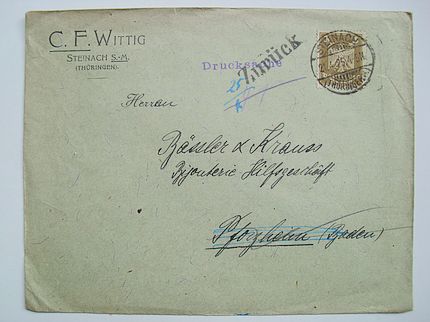 C. F. WITTIG
STEINACH S.-M.
(THÜRINGEN).
Drucksache
Zurück
STEINACH
(THÜRINGEN)
25
Herren
Bässler & Krauss
Bijouterie Hilfsgeschäft
Pforzheim (Baden)